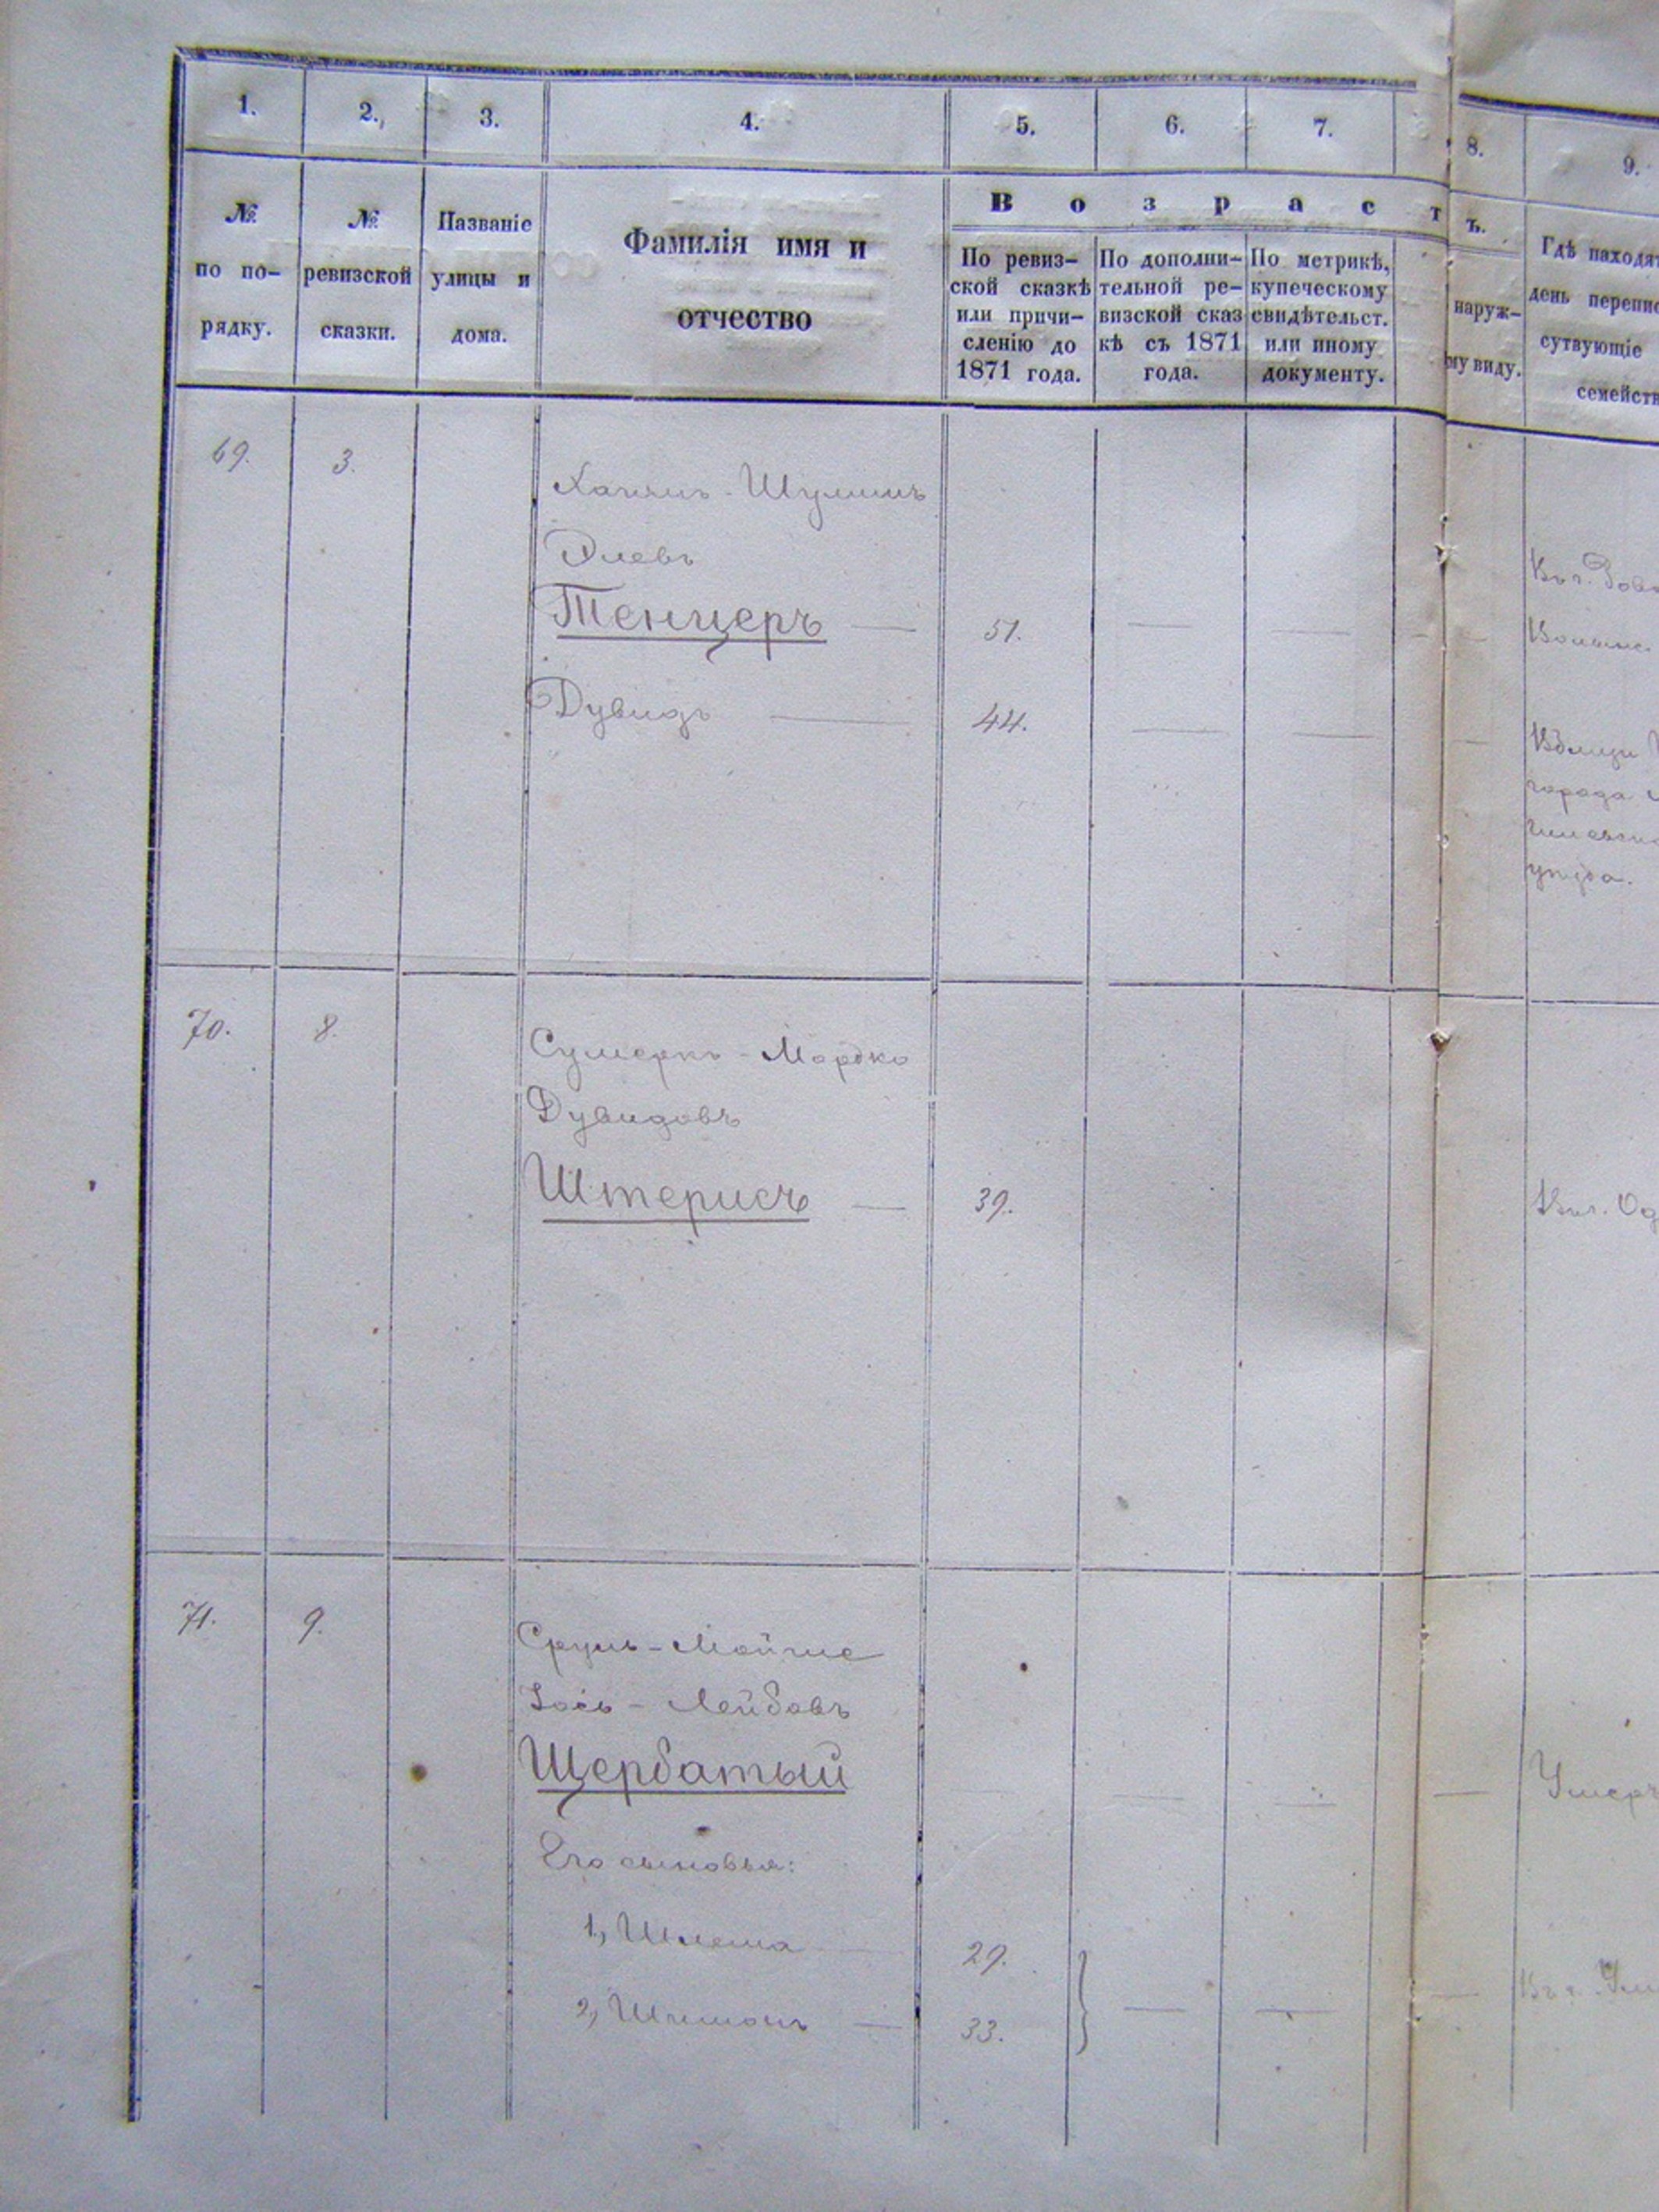 1. 2. 3. 4. 5. 6. 7. 8. 9.
№ по по- рядку.
№ ревизской сказки.
Названіе улицы и дома.
Фамилія имя и
отчество
Возрастъ.
По ревиз-
ской сказкѣ
или причи-
сленію до
1871 года.
По дополни-
тельной ре-
визской сказ
кѣ съ 1871
года.
По метрикѣ,
купеческому
свидѣтельст.
или иному
документу.
наруж-
му виду.
Гдѣ находят
день перепис
сутвующіе
семейств
69. 3.
Шулимъ
Элевъ
Тенцеръ — 51. — — —
Дувидъ — 44. — — —
города
уѣзда.
70. 8.
Сумеръ - Мордко
Дувидовъ
Штерисъ — 39.
71. 9.
Сруль - Мойше
Іось - Лейбовъ
Щербатый — — — — Умеръ
Его сыновья:
1, Шлема — 29.
2, Шимонъ — 33. — — —